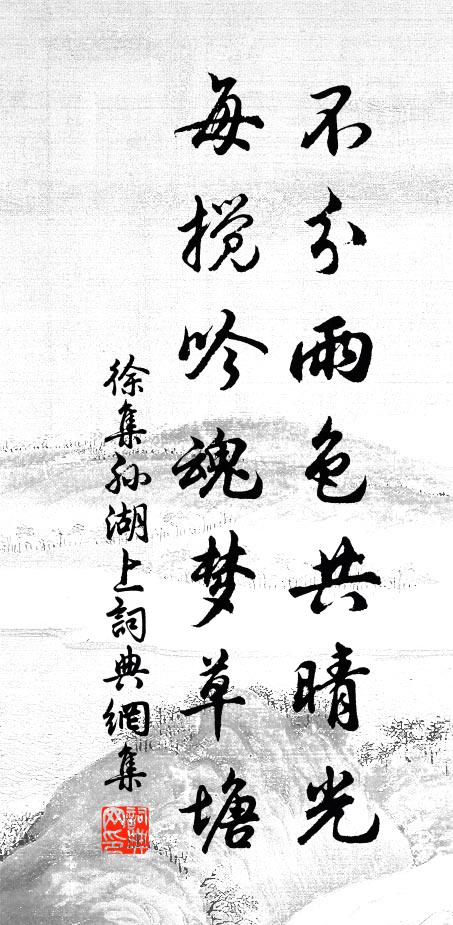 不分雨色共晴光
每搅吟魂梦草塘
徐集孙湖上詞典網集